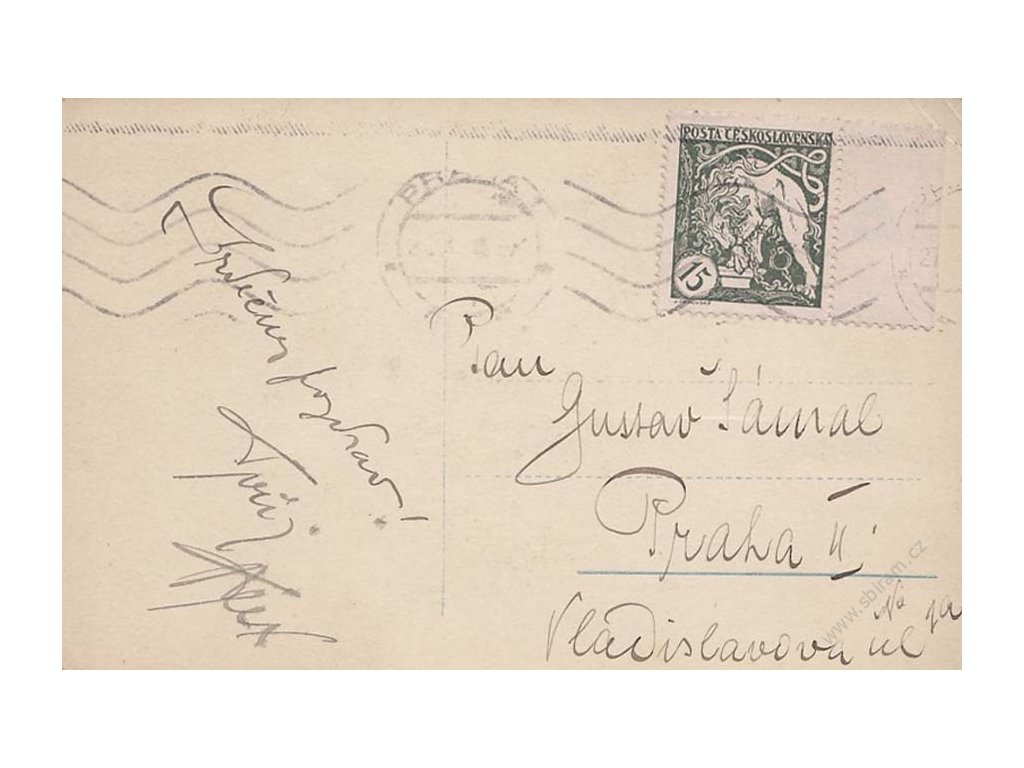 POŠTA ČESKOSLOVENSKÁ
15
PRAHA
Srdečný pozdrav!
Pan
Gustav Šámal
Praha II.
No
Vladislavova ul
www.sbiram.cz